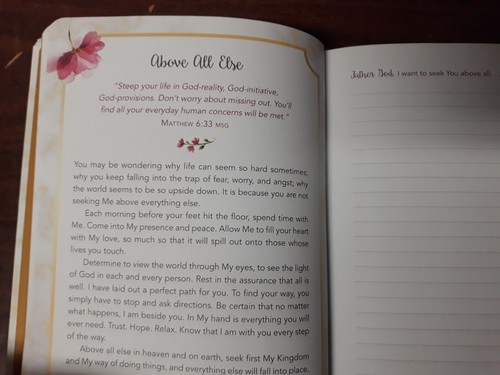 Above All Else
"Steep your life in God-reality, God-initiative,
God-provisions. Don't worry about missing out. You'll
find all your everyday human concerns will be met."
Matthew 6:33 MSG
You may be wondering why life can seem so hard sometimes,
why you keep falling into the trap of fear, worry, and angst; why
the world seems to be so upside down. It is because you are not
seeking Me above everything else.
Each morning before your feet hit the floor, spend time with
Me. Come into My presence and peace. Allow Me to fill your heart
with My love, so much so that it will spill out onto those whose
lives you touch.
Determine to view the world through My eyes, to see the light
of God in each and every person. Rest in the assurance that all is
well. I have laid out a perfect path for you. To find your way, you
simply have to stop and ask directions. Be certain that no matter
what happens, I am beside you. In My hand is everything you will
ever need. Trust. Hope. Relax. Know that I am with you every step
of the way.
Above all else in heaven and on earth, seek first My Kingdom
and My way of doing things, and everything else will fall into place.
Father God, I want to seek You above all